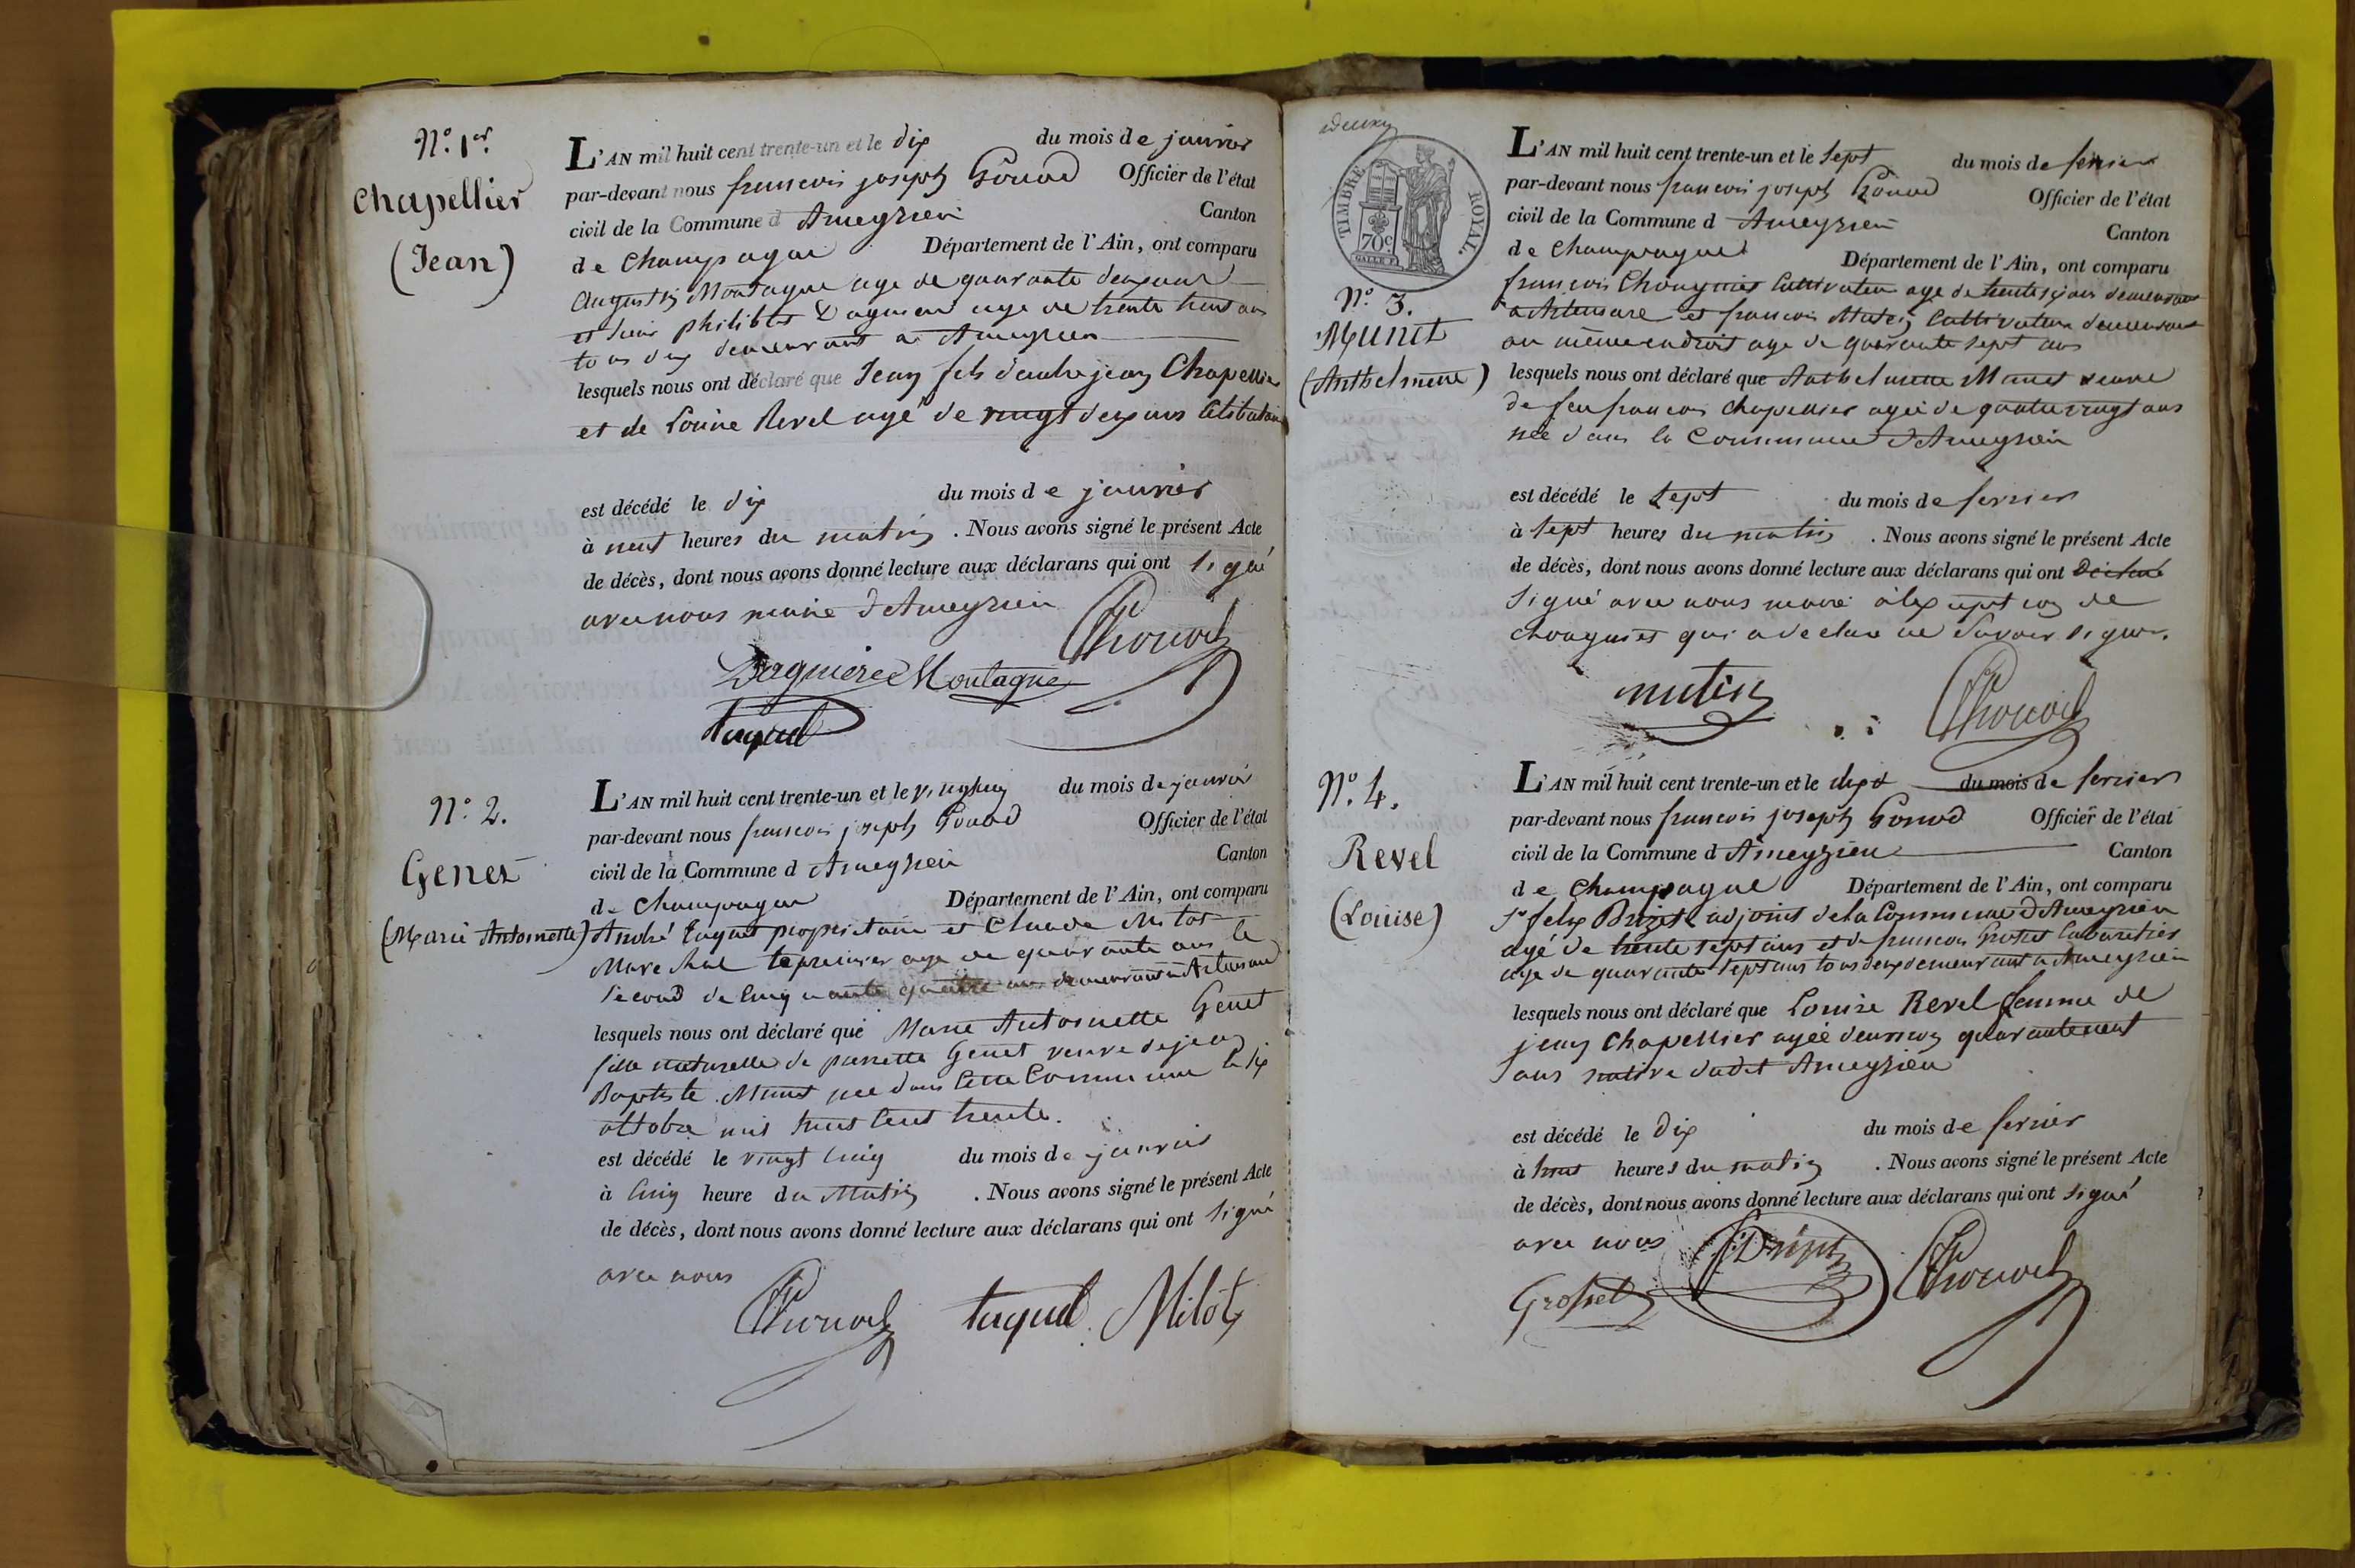 N.º 1er.
Chapellier
(Jean)
L'AN mil huit cent trente-un et le dix du mois de janvier
par-devant nous francois joseph Gonod Officier de l'état
civil de la Commune d Ameyzieu Canton
de Champagne Département de l'Ain, ont comparu
augustin Montagne age de quarante deux ans
et sieur philibert Dagniere age de trente huit ans
tous deux demeurant a Ameyzieu
lesquels nous ont déclaré que Jean fils d'autre jean Chapellier
et de Louise Revel agé de vingt deux ans Celibataire
est décédé le dix du mois de janvier
à neuf heures du matin . Nous avons signé le présent Acte
de décès, dont nous avons donné lecture aux déclarans qui ont signé
avec nous maire d'Ameyzieu
Dagniere Montagne Gonod
taquet
N.º 2.
Genet
(Marie Antoinette)
L'AN mil huit cent trente-un et le vingt cinq du mois de janvier
par-devant nous francois joseph Gonod Officier de l'état
civil de la Commune d Ameyzieu Canton
de Champagne Département de l'Ain, ont comparu
André taquet proprietaire et Claude Milot
Marechal le premier age de quarante ans le
second de Cinquante quatre ans demeurant a Artemare
lesquels nous ont déclaré que Marie Antoinette Genet
fille naturelle de pierrette Genet veuve de jean
Baptiste Munet nee dans cette Commune le six
octobre mil huit Cent trente.
est décédé le vingt Cinq du mois de janvier
à Cinq heure du Matin . Nous avons signé le présent Acte
de décès, dont nous avons donné lecture aux déclarans qui ont signé
avec nous
Gonod taquet Milot
TIMBRE ROYAL
70c
N.º 3.
Munet
(Anthelmette)
L'AN mil huit cent trente-un et le sept du mois de fevrier
par-devant nous francois joseph Gonod Officier de l'état
civil de la Commune d Ameyzieu Canton
de Champagne Département de l'Ain, ont comparu
francois Cultivateur age de demeurant
a Artemare et francois Mutin Cultivateur demeurant
au même endroit age de quarante sept ans
lesquels nous ont déclaré que Anthelmette Munet veuve
de feu francois Chapellier agée de quatre vingt ans
née dans la Commune d'Ameyzieu
est décédé le sept du mois de fevrier
à sept heures du matin . Nous avons signé le présent Acte
de décès, dont nous avons donné lecture aux déclarans qui ont déclaré
signé avec nous maire à l'exception de
qui a declaré ne savoir signer.
mutin Gonod
N.º 4.
Revel
(Louise)
L'AN mil huit cent trente-un et le dix du mois de fevrier
par-devant nous francois joseph Gonod Officier de l'état
civil de la Commune d Ameyzieu Canton
de Champagne Département de l'Ain, ont comparu
Sr felix adjoint de la Commune d'Ameyzieu
agé de trente sept ans et de francois Grosset Cabaretier
age de quarante sept ans tous deux demeurant a Ameyzieu
lesquels nous ont déclaré que Louise Revel femme de
jean Chapellier agée d'environ quarante neuf
ans native dudit Ameyzieu
est décédé le dix du mois de fevrier
à huit heures du matin . Nous avons signé le présent Acte
de décès, dont nous avons donné lecture aux déclarans qui ont signé
avec nous
Grosset Gonod